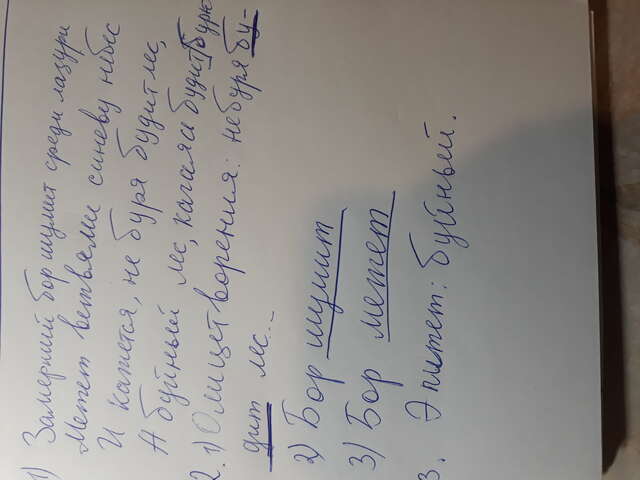 1) Замерший бор шумит среди лазури
Метет ветвями синеву небес
И кажется, не буря будит лес,
А буйный лес, качаясь будит бурю
2. 1) Олицетворения: не буря бу-
дит лес...
2) Бор шумит
3) Бор метет
3. Эпитет: буйный.